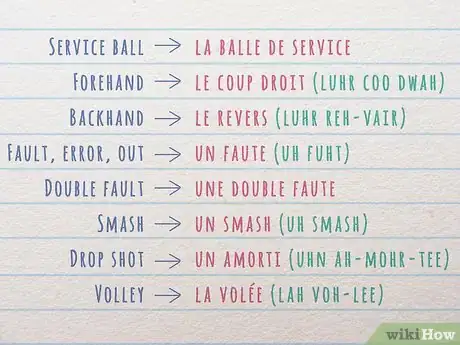 SERVICE BALL → LA BALLE DE SERVICE
FOREHAND → LE COUP DROIT (LUHR COO DWAH)
BACKHAND → LE REVERS (LUHR REH-VAIR)
FAULT, ERROR, OUT → UN FAUTE (UH FUHT)
DOUBLE FAULT → UNE DOUBLE FAUTE
SMASH → UN SMASH (UH SMASH)
DROP SHOT → UN AMORTI (UHN AH-MOHR-TEE)
VOLLEY → LA VOLÉE (LAH VOH-LEE)
wikiHow